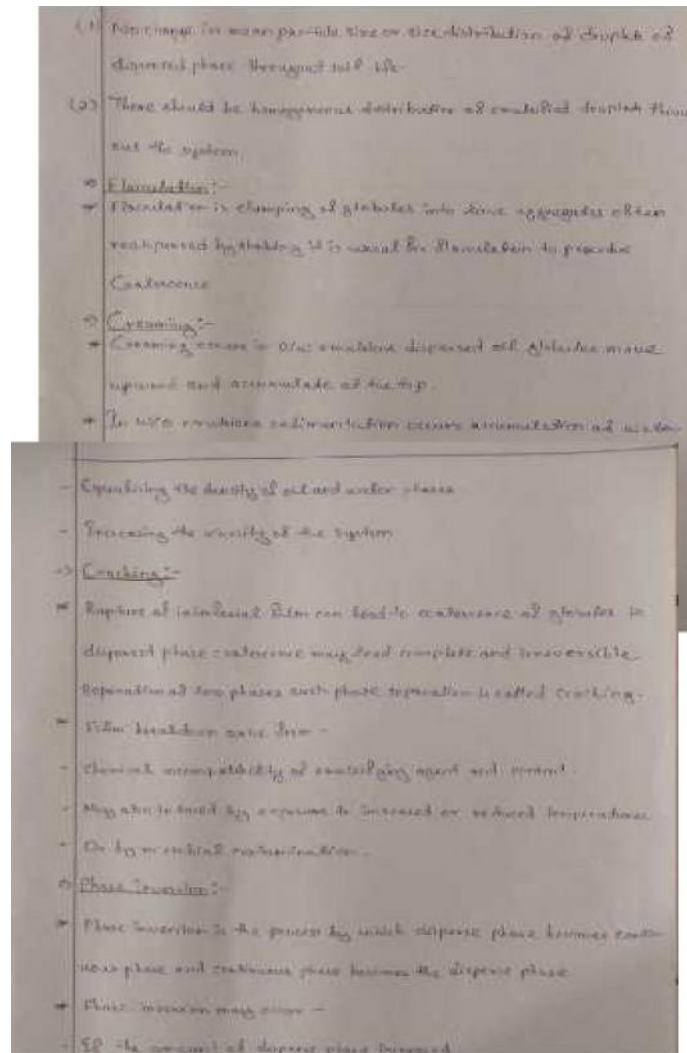 (1) No change in mean particle size or size distribution of droplets of
dispersed phase throughout shelf life.
(2) There should be homogeneous distribution of emulsified droplets throu
out the system.
Flocculation:-
Flocculation is clumping of globules into loose aggregates often
by shaking it is usual for flocculation to precede
Coalescence
Creaming:-
Creaming occurs in O/W emulsions dispersed oil globules move
upward and accumulate at the top.
In W/O emulsions sedimentation occurs accumulation of water
- Equalising the density of oil and water phases
- Increasing the viscosity of the system
Cracking:-
Rupture of interfacial film can lead to coalescence of globules in
dispersed phase coalescence may lead complete and irreversible
separation of two phases such phase separation is called cracking.
Film breakdown arise from -
- Chemical incompatibility of emulsifying agent and
- May also be by exposure to increased or reduced temperatures
- Or by microbial contamination.
Phase inversion:-
Phase inversion is the process by which disperse phase becomes contin
uous phase and continuous phase becomes the disperse phase
Phase inversion may occur -
- If the amount of disperse phase increased